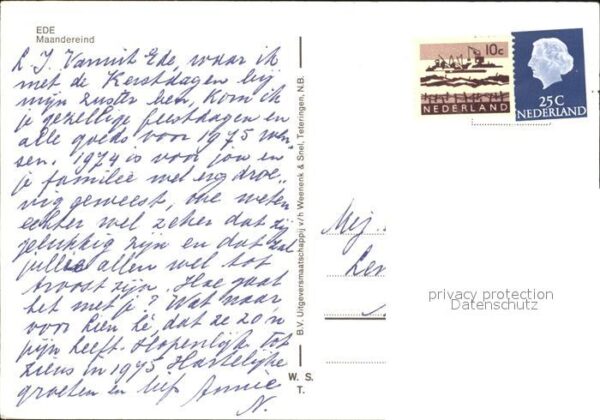 EDE
Maandereind
L. J. Vanuit Ede, waar ik
met de Kerstdagen bij
mijn zuster ben, kom ik
je gezellige feestdagen en
alle goeds voor 1975 wen
sen. 1974 is voor jou en
je familie wel erg droe-
vig geweest, we weten
echter wel zeker dat zij
gelukkig zijn en dat zal
jullie allen wel tot
troost zijn. Hoe gaat
het met je? Wat naar
voor hè, dat ze zo'n
pijn heeft. Hopenlijk tot
ziens in 1975 Hartelijke
groeten en liefs Annie
N.
B.V. Uitgeversmaatschappij v/h Weenenk & Snel, Teteringen, N.B.
W. S.
T.
10c
NEDERLAND
25C
NEDERLAND
Mej.
privacy protection
Datenschutz